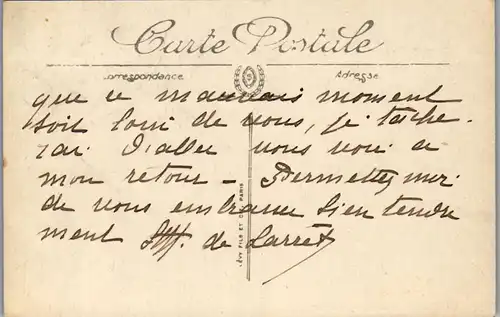 Carte Postale
Correspondance Adresse
que ce mauvais moment
soit loin de vous, je tâche-
rai d'aller vous voir à
mon retour - Permettez moi
de vous embrasser bien tendre
ment de Larret
LÉVY FILS ET CIE, PARIS